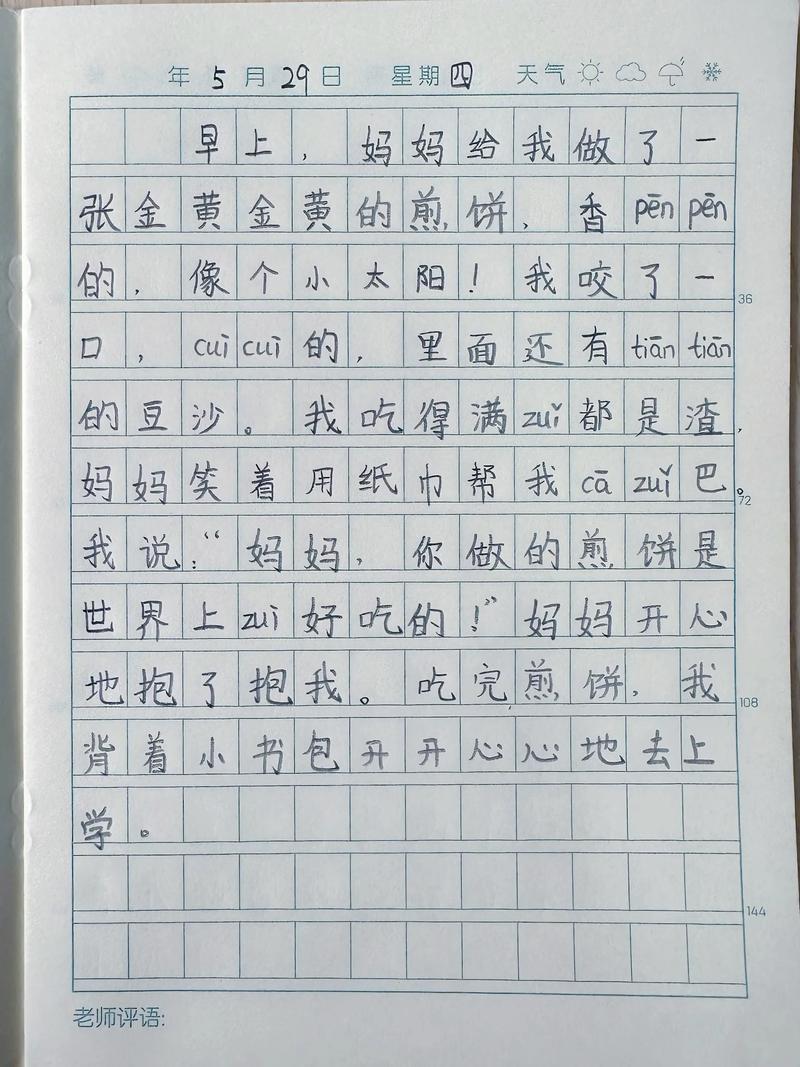 年 5 月 29 日 星期 四 天气
早上，妈妈给我做了一
张金黄金黄的煎饼，香pēn pēn
的，像个小太阳！我咬了一
36
口，cuì cuì的，里面还有tiān tiān
的豆沙。我吃得满zuǐ都是渣，
妈妈笑着用纸巾帮我cā zuǐ巴。
72
我说：“妈妈，你做的煎饼是
世界上zuì好吃的！”妈妈开心
地抱了抱我。吃完煎饼，我
108
背着小书包开开心心地去上
学。
144
老师评语: